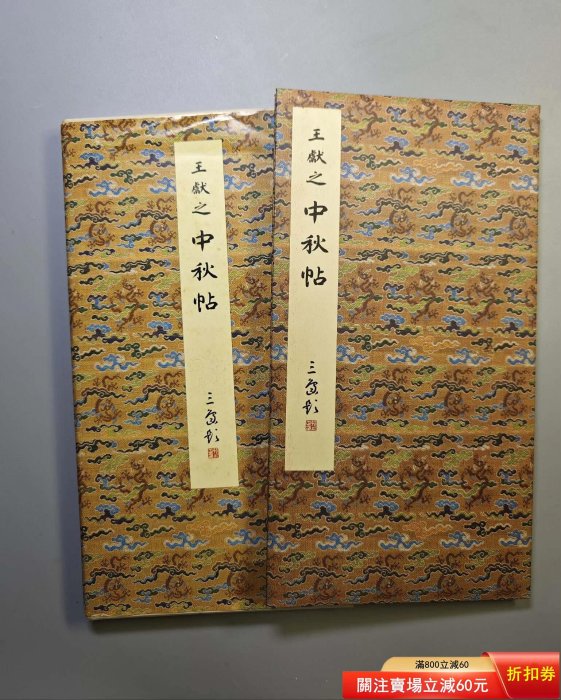 王獻之中秋帖
王獻之中秋帖
滿800立減60
關注賣場立減60元
折扣券